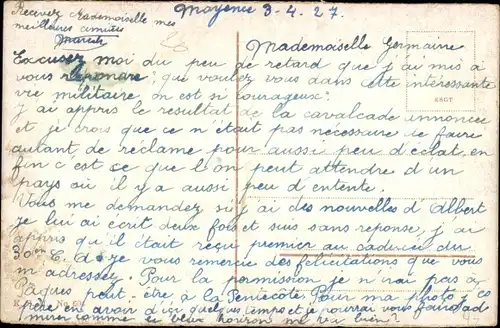 Mayence 3-4.27.
Recevez Mademoiselle mes
meilleures amitiés
Marcel
Mademoiselle Germaine
Excusez moi du peu de retard que j'ai mis à
vous répondre; que voulez vous dans cette intéressante
vie militaire on est si courageux!
J'ai appris le résultat de la cavalcade annoncée
et je crois que ce n'était pas nécessaire de faire
autant de réclame pour aussi peu d'éclat, en
fin c'est ce que l'on peut attendre d'un
pays où il y a aussi peu d'entente.
Vous me demandez si j'ai des nouvelles d'Albert
je lui ai écrit deux fois et suis sans réponse, j'ai
appris qu'il était reçu premier au du
30me E. d je vous remercie des félicitations que vous
m'adressez. Pour la permission je n'irai pas à
Pâques peut-être à la Pentecôte. Pour ma photo je
en avoir d'ici quelques temps et je pourrai vous faire ad
mirer comme le vieux me va bien?